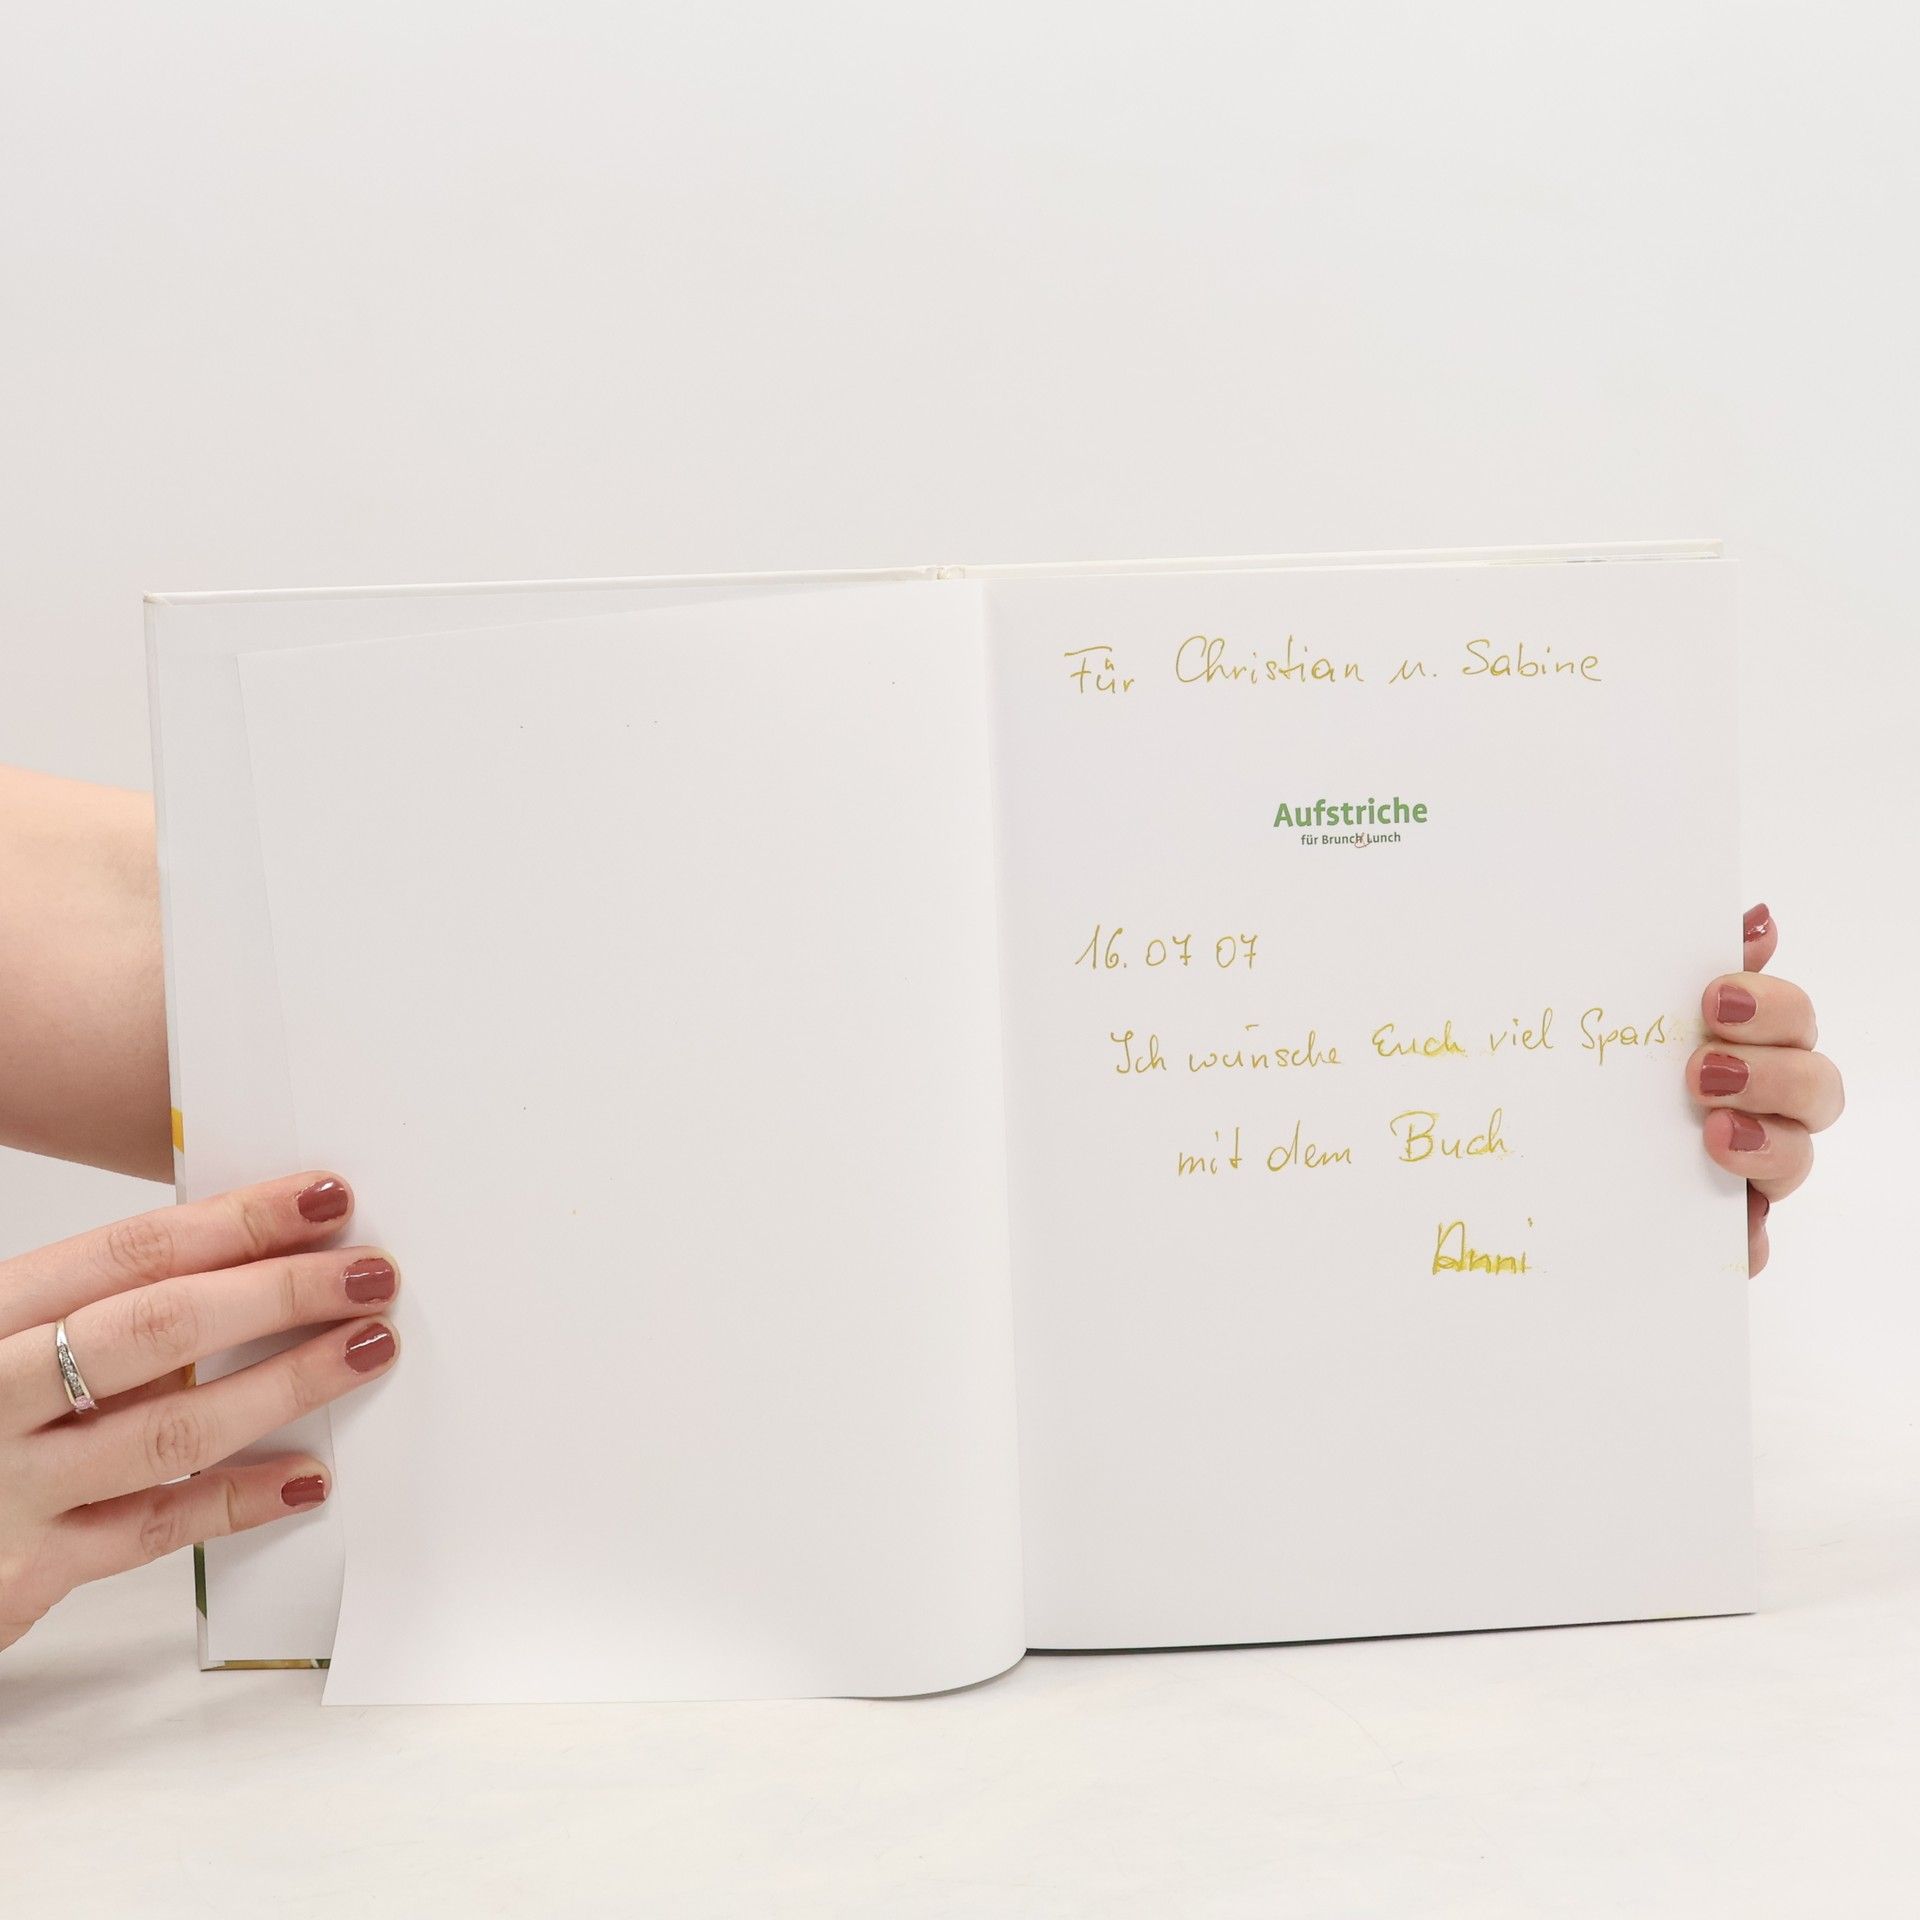 Für Christian u. Sabine
Aufstriche
für Brunch & Lunch
16. 07 07
Ich wünsche Euch viel Spaß
mit dem Buch
Anni